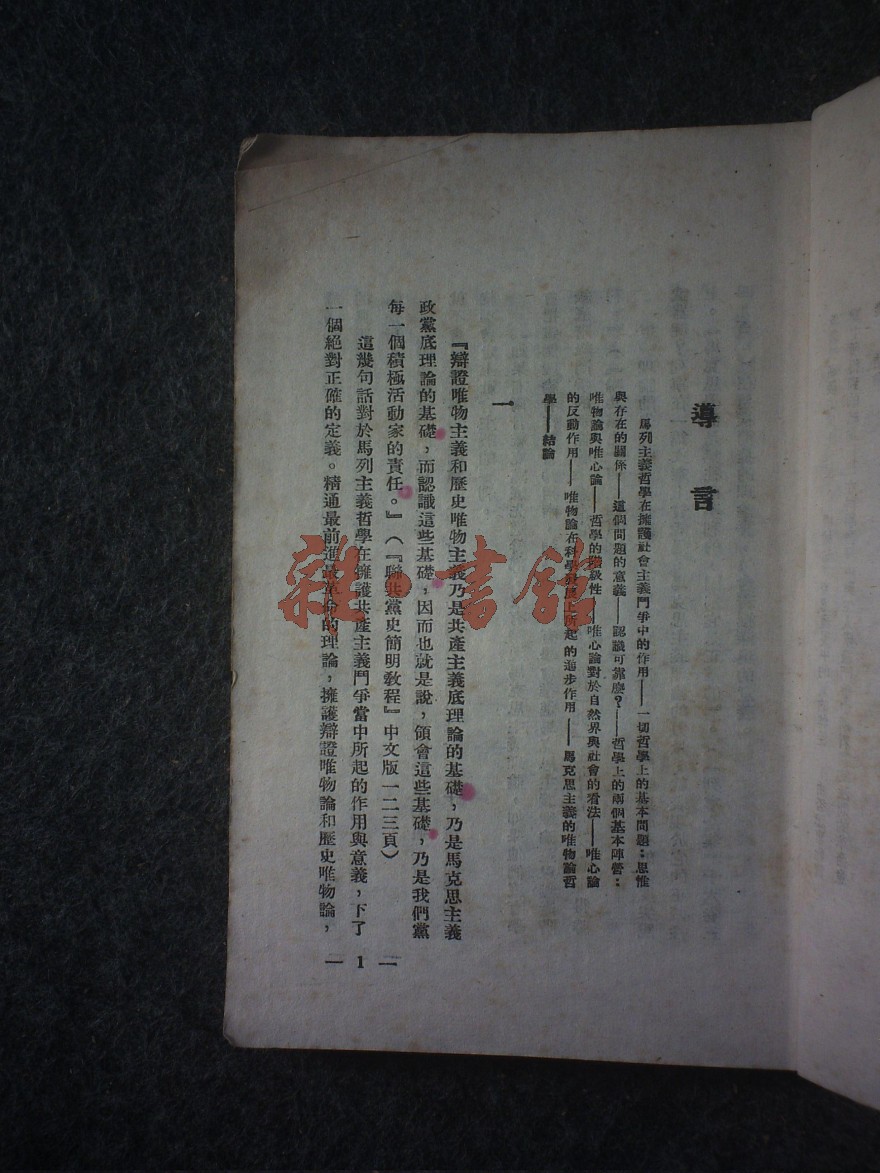 導言
馬列主義哲學在擁護社會主義鬥爭中的作用——一切哲學上的基本問題：思惟
與存在的關係——這個問題的意義——認識可靠麼？——哲學上的兩個基本陣營：
唯物論與唯心論——哲學的階級性——唯心論對於自然界與社會的看法——唯心論
的反動作用——唯物論在科學發展上所起的進步作用——馬克思主義的唯物論哲
學——結論
一
『辯證唯物主義和歷史唯物主義乃是共產主義底理論的基礎，乃是馬克思主義
政黨底理論的基礎，而認識這些基礎，因而也就是說，領會這些基礎，乃是我們黨
每一個積極活動家的責任。』（『聯共黨史簡明教程』中文版一二三頁）
這幾句話對於馬列主義哲學在擁護共產主義鬥爭當中所起的作用與意義，下了
一個絕對正確的定義。精通最前進最革命的理論，擁護辯證唯物論和歷史唯物論，
— 1 —
雜·書館